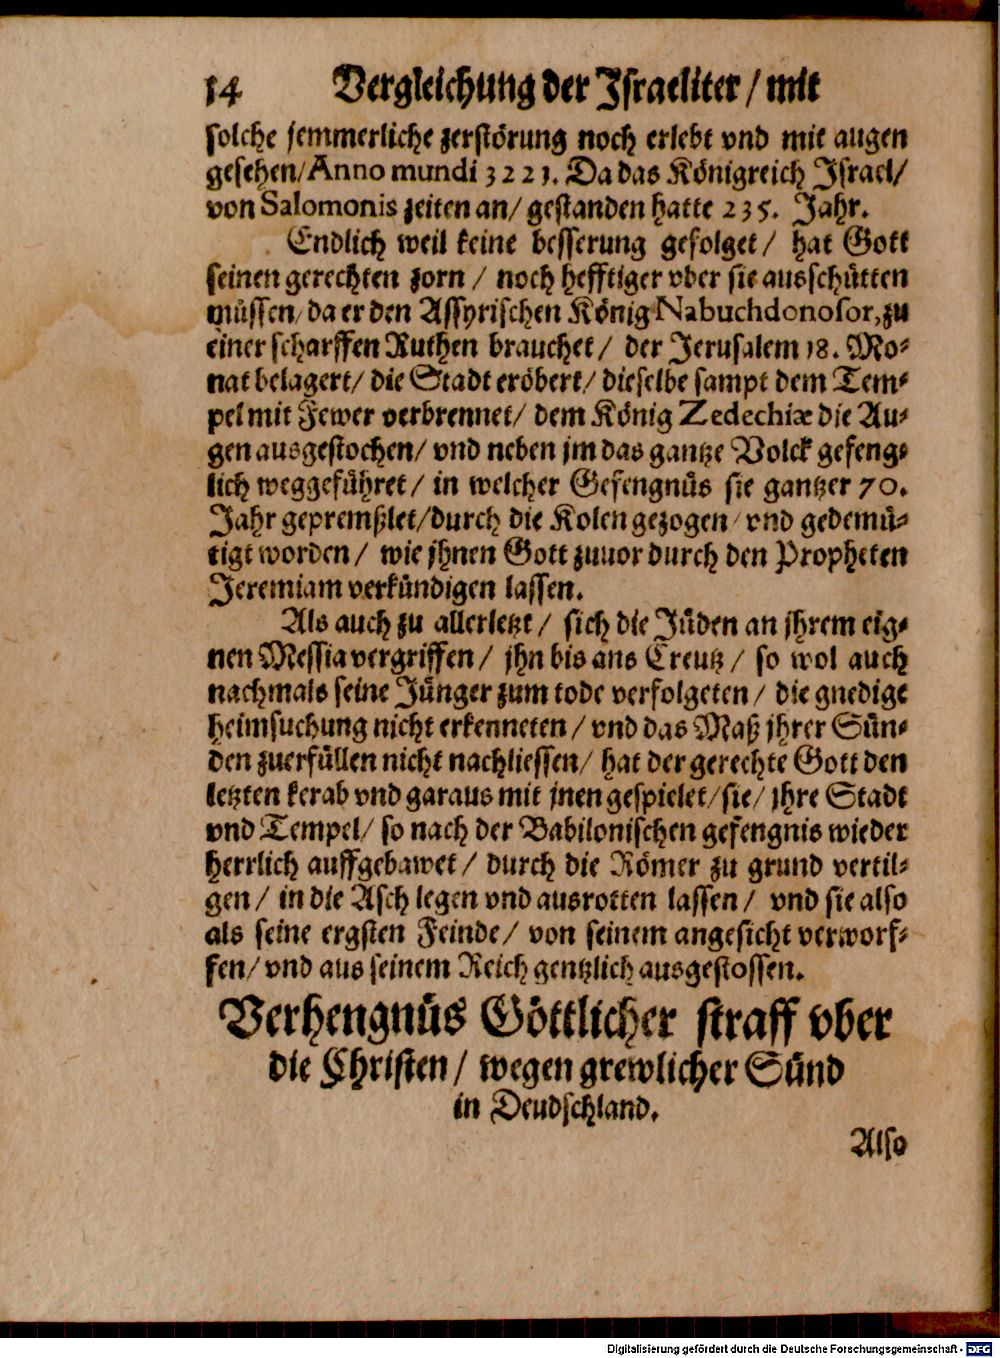 14 Vergleichung der Israeliter / mit
solche jemmerliche zerstörung noch erlebt vnd mit augen
gesehen/ Anno mundi 3221. Da das Königreich Israel/
von Salomonis zeiten an/ gestanden hatte 235. Jahr.
Endlich weil keine besserung gefolget/ hat Gott
seinen gerechten zorn / noch hefftiger vber sie ausschütten
müssen/ da er den Assyrischen König Nabuchdonosor, zu
einer scharffen Ruthen brauchet/ der Jerusalem 18. Mo-
nat belagert/ die Stadt eröbert/ dieselbe sampt dem Tem-
pel mit Fewer verbrennet/ dem König Zedechiæ die Au-
gen ausgestochen/ vnd neben jm das gantze Volck gefeng-
lich weggeführet/ in welcher Gefengnüs sie gantzer 70.
Jahr gepremßlet/ durch die Kolen gezogen/ vnd gedemü-
tigt worden/ wie jhnen Gott zuuor durch den Propheten
Jeremiam verkündigen lassen.
Als auch zu allerletzt/ sich die Jüden an jhrem eig-
nen Messia vergriffen/ jhn bis ans Creutz/ so wol auch
nachmals seine Jünger zum tode verfolgeten/ die gnedige
heimsuchung nicht erkenneten/ vnd das Maß jhrer Sün-
den zuerfüllen nicht nachliessen/ hat der gerechte Gott den
letzten kerab vnd garaus mit jnen gespielet/ sie/ jhre Stadt
vnd Tempel/ so nach der Babilonischen gefengnis wieder
herrlich auffgebawet/ durch die Römer zu grund vertil-
gen/ in die Asch legen vnd ausrotten lassen/ vnd sie also
als seine ergsten Feinde/ von seinem angesicht verworf-
fen/ vnd aus seinem Reich gentzlich ausgestossen.
Verhengnüs Göttlicher straff vber
die Christen/ wegen grewlicher Sünd
in Deudschland.
Also
Digitalisierung gefördert durch die Deutsche Forschungsgemeinschaft - DFG